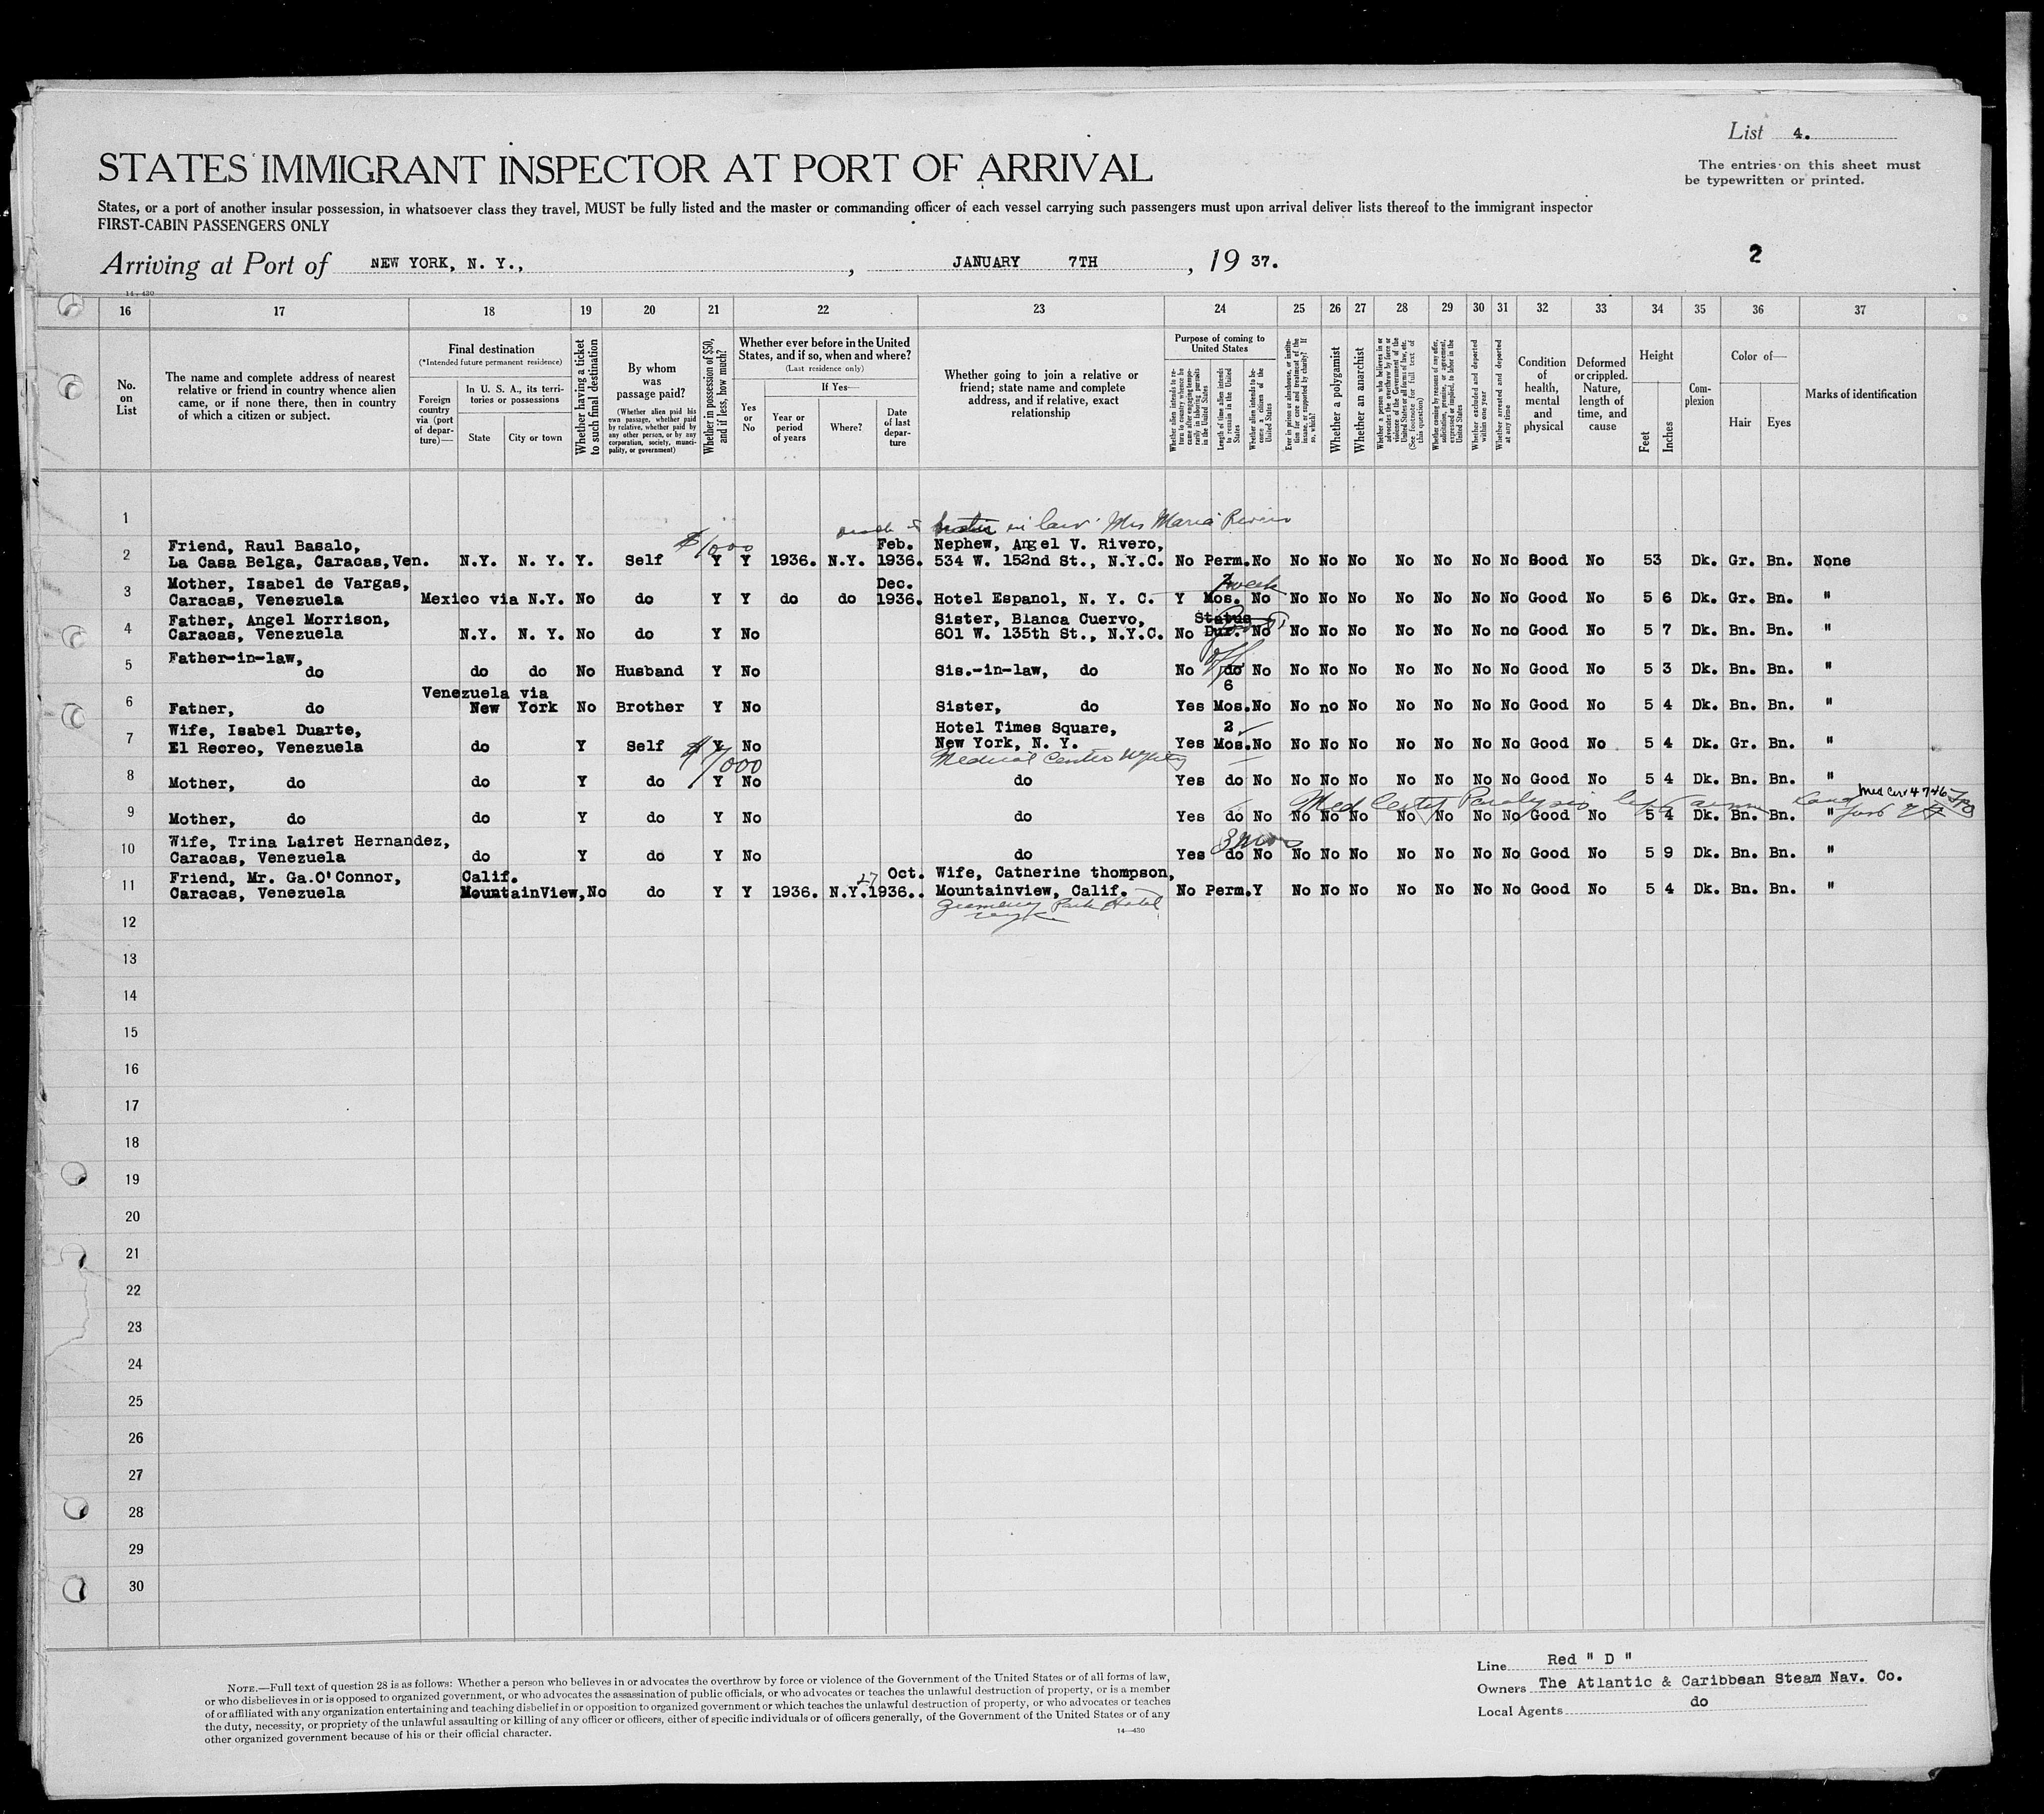 List 4.
The entries on this sheet must
be typewritten or printed.
STATES IMMIGRANT INSPECTOR AT PORT OF ARRIVAL
States, or a port of another insular possession, in whatsoever class they travel, MUST be fully listed and the master or commanding officer of each vessel carrying such passengers must upon arrival deliver lists thereof to the immigrant inspector
FIRST-CABIN PASSENGERS ONLY
Arriving at Port of NEW YORK, N. Y., , JANUARY 7TH , 19 37.
2
14-430
16 17 18 19 20 21 22 23 24 25 26 27 28 29 30 31 32 33 34 35 36 37
No. on List
The name and complete address of nearest relative or friend in country whence alien came, or if none there, then in country of which a citizen or subject.
Final destination
(*Intended future permanent residence)
Foreign country via (port of departure)—
In U. S. A., its territories or possessions
State
City or town
Whether having a ticket to such final destination
By whom was passage paid?
(Whether alien paid his own passage, whether paid by relative, whether paid by any other person, or by any corporation, society, municipality, or government)
Whether in possession of $50, and if less, how much?
Whether ever before in the United States, and if so, when and where?
(Last residence only)
Yes or No
If Yes—
Year or period of years
Where?
Date of last departure
Whether going to join a relative or friend; state name and complete address, and if relative, exact relationship
Purpose of coming to United States
Whether alien intends to return to country whence he came after engaging temporarily in laboring pursuits in the United States
Length of time alien intends to remain in the United States
Whether alien intends to become a citizen of the United States
Ever in prison or almshouse, or institution for care and treatment of the insane, or supported by charity? If so, which?
Whether a polygamist
Whether an anarchist
Whether a person who believes in or advocates the overthrow by force or violence of the Government of the United States or all forms of law, etc. (See footnote for full text of this question)
Whether coming by reasons of any offer, solicitation, promise, or agreement, expressed or implied, to labor in the United States
Whether excluded and deported within one year
Whether arrested and deported at any time
Condition of health, mental and physical
Deformed or crippled. Nature, length of time, and cause
Height
Feet
Inches
Complexion
Color of—
Hair
Eyes
Marks of identification
1
in law Mrs Maria Rivero
$1000
2 Friend, Raul Basalo, Feb. Nephew, Angel V. Rivero,
La Casa Belga, Caracas, Ven. N.Y. N. Y. Y. Self Y Y 1936. N.Y. 1936. 534 W. 152nd St., N.Y.C. No Perm. No No No No No No No No Good No 53 Dk. Gr. Bn. None
3 Mother, Isabel de Vargas, Dec. 2 week
Caracas, Venezuela Mexico via N.Y. No do Y Y do do 1936. Hotel Espanol, N. Y. C. Y Mos. No No No No No No No No Good No 5 6 Dk. Gr. Bn. "
4 Father, Angel Morrison, Sister, Blanca Cuervo, Status
Caracas, Venezuela N.Y. N. Y. No do Y No 601 W. 135th St., N.Y.C. No Dur. No No No No No No No no Good No 5 7 Dk. Bn. Bn. "
5 Father-in-law,
do do do No Husband Y No Sis.-in-law, do No do No No No No No No No No Good No 5 3 Dk. Bn. Bn. "
6 Venezuela via 6
Father, do New York No Brother Y No Sister, do Yes Mos. No No no No No No No No Good No 5 4 Dk. Bn. Bn. "
7 Wife, Isabel Duarte, Hotel Times Square, 2
El Recreo, Venezuela do Y Self Y No New York, N. Y. Yes Mos. No No No No No No No No Good No 5 4 Dk. Gr. Bn. "
$1000 Medical Center
8 Mother, do do Y do Y No do Yes do No No No No No No No No Good No 5 4 Dk. Bn. Bn. "
Med Certif Paralysis left arm Med Cer 4746
9 Mother, do do Y do Y No do Yes do No No No No No No No No Good No 5 4 Dk. Bn. Bn. "
3 mos
10 Wife, Trina Lairet Hernandez,
Caracas, Venezuela do Y do Y No do Yes do No No No No No No No No Good No 5 9 Dk. Bn. Bn. "
11 Friend, Mr. Ga.O'Connor, Calif. 27 Oct. Wife, Catherine thompson,
Caracas, Venezuela MountainView, No do Y Y 1936. N.Y. 1936.. Mountainview, Calif. No Perm. Y No No No No No No No Good No 5 4 Dk. Bn. Bn. "
Park Hotel
12
13
14
15
16
17
18
19
20
21
22
23
24
25
26
27
28
29
30
NOTE.—Full text of question 28 is as follows: Whether a person who believes in or advocates the overthrow by force or violence of the Government of the United States or of all forms of law,
or who disbelieves in or is opposed to organized government, or who advocates the assassination of public officials, or who advocates or teaches the unlawful destruction of property, or is a member
of or affiliated with any organization entertaining and teaching disbelief in or opposition to organized government or which teaches the unlawful destruction of property, or who advocates or teaches
the duty, necessity, or propriety of the unlawful assaulting or killing of any officer or officers, either of specific individuals or of officers generally, of the Government of the United States or of any
other organized government because of his or their official character.
14-430
Line Red " D "
Owners The Atlantic & Caribbean Steam Nav. Co.
Local Agents do